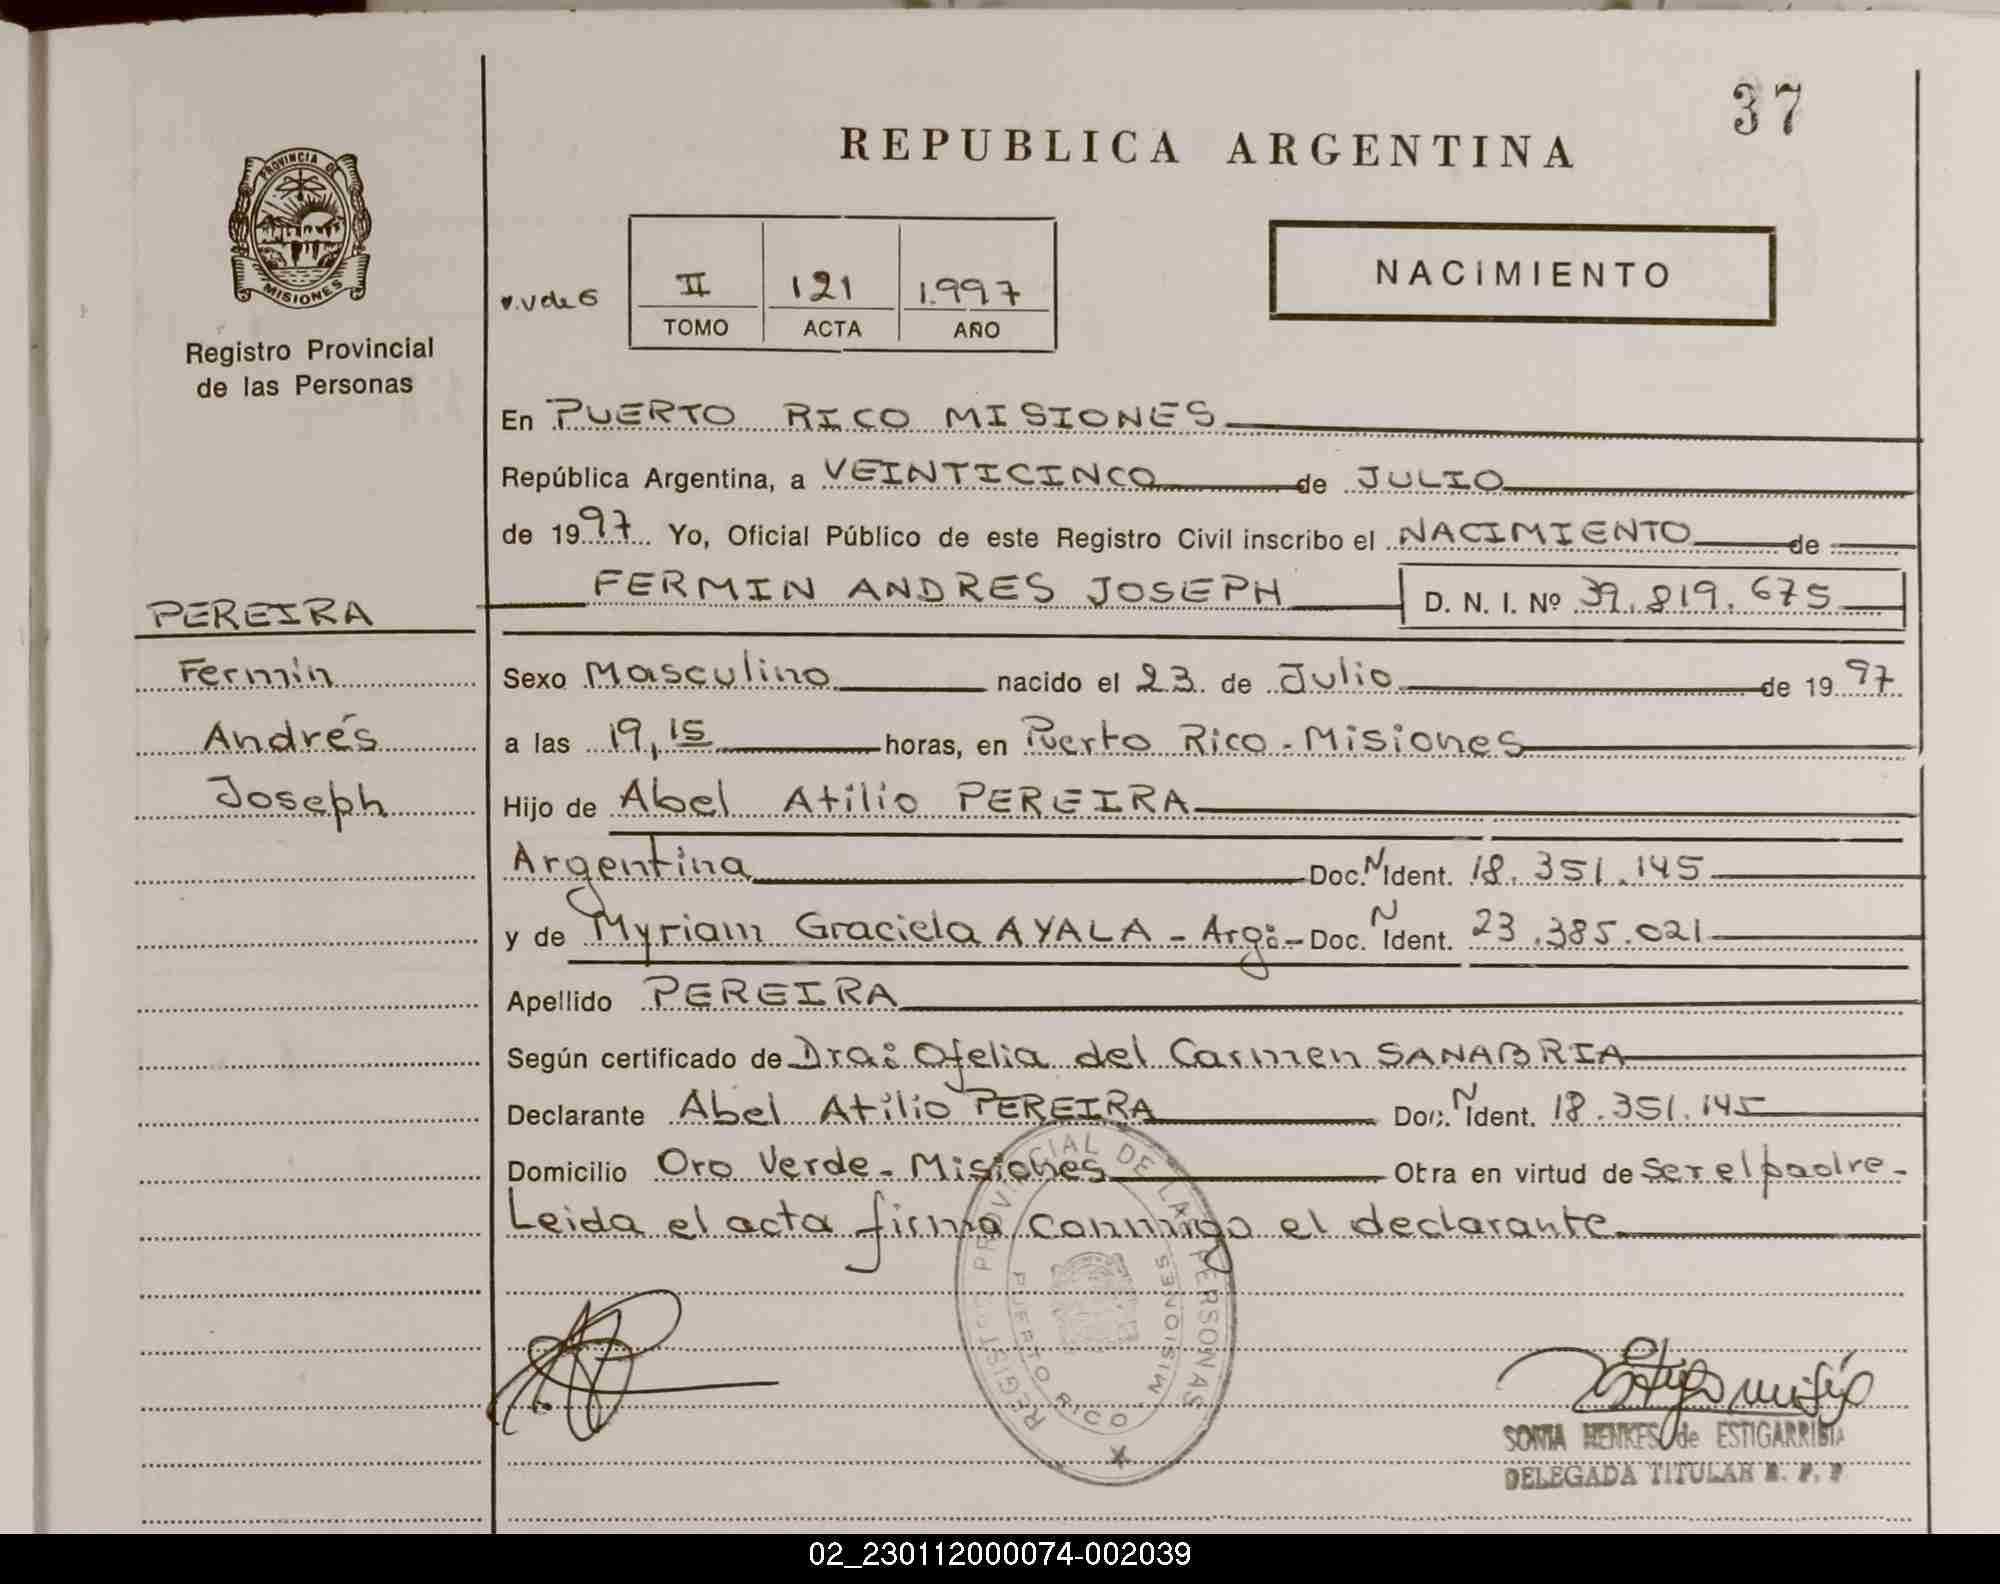 37
REPUBLICA ARGENTINA
PROVINCIA DE
MISIONES
Registro Provincial
de las Personas
II 121 1.997
TOMO ACTA AÑO
NACIMIENTO
En PUERTO RICO MISIONES
República Argentina, a VEINTICINCO de JULIO
de 1997. Yo, Oficial Público de este Registro Civil inscribo el NACIMIENTO de
FERMIN ANDRES JOSEPH D. N. I. Nº 39.819.675
PEREIRA
Fermín
Andrés
Joseph
Sexo Masculino nacido el 23 de Julio de 1997
a las 19,15 horas, en Puerto Rico - Misiones
Hijo de Abel Atilio PEREIRA
Argentina Doc. N Ident. 18.351.145
y de Myriam Graciela AYALA - Arg: - Doc. N Ident. 23.385.021
Apellido PEREIRA
Según certificado de Dra: Ofelia del Carmen SANABRIA
Declarante Abel Atilio PEREIRA Doc. N Ident. 18.351.145
Domicilio Oro Verde - Misiones Otra en virtud de ser el padre -
Leida el acta firma conmigo el declarante
REGISTRO PROVINCIAL DE LAS PERSONAS
PUERTO RICO - MISIONES
SONIA HENKES de ESTIGARRIBIA
DELEGADA TITULAR R. P. P
02_230112000074-002039